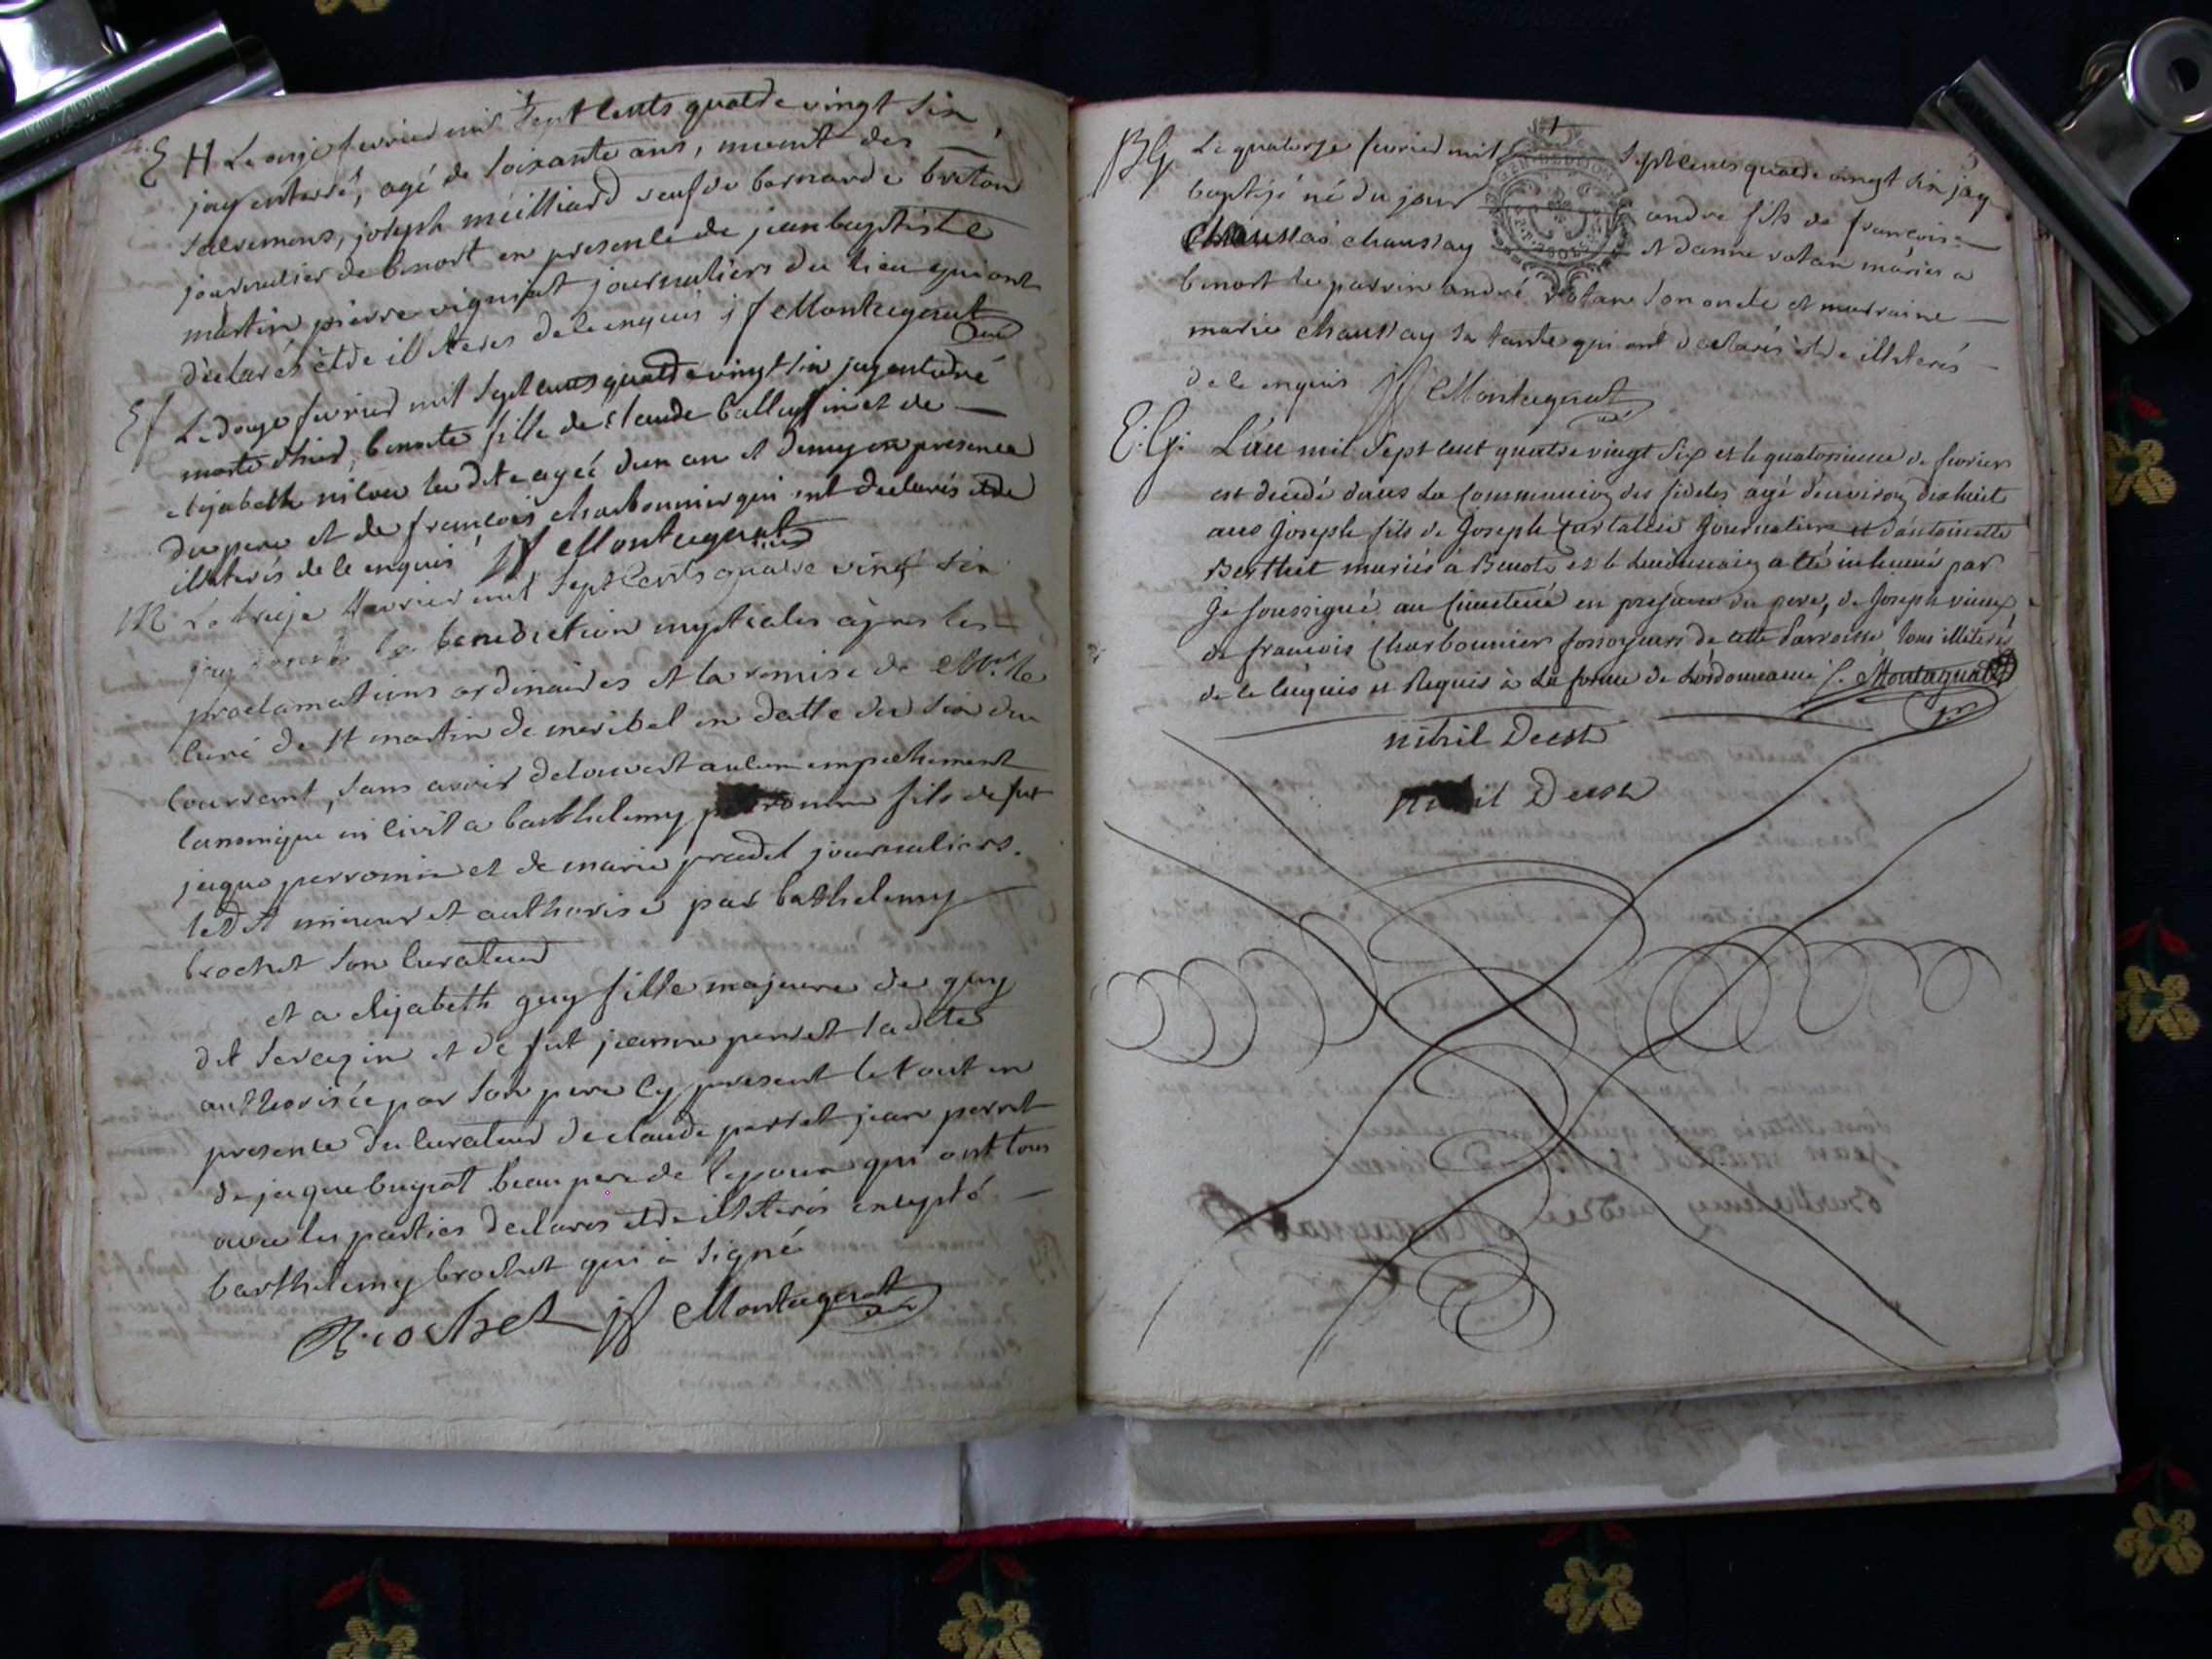 E H Le onze fevrier mil sept cents quatde vingt six
jay enterré, agé de soixante ans, meunt des
sacremens, joseph meilliard veuf de bernarde breton
journalier de benost en presence de jean baptiste
martin pierre vigniat journaliers du lieu qui ont
déclarés etde illiteres de ce enquis jf Montagnat
E f Le douze fevrier mil sept cents quatde vingt six jay enterré
morte d'hier, benoite fille de claude ballufin et de
elizabeth la dite agée dun an et demy en presence
du pere et de françois charbonnier qui ont declarés etde
illiterés de ce enquis jf Montagnat
M Le treize fevrier mil sept cents quatre vingt six
jay la benediction nuptiales apres les
proclamations ordinaires et la remise de Mr. le
curé de st martin de miribel en datte du six du
courrant, sans avoir decouvert aucun empechement
canonique ni civil a barthelemy perromin fils de fut
jaque perromin et de marie pradel journaliers.
ledit mineur et authorisé par barthelemy
brochet son curateur
et a elizabeth guy fille majeure de guy
dit sarazin et de fut jeanne perret la dite
authorisée par son pere cy present le tout en
presence du curateur de claude perret jean perret
de jaque bugnot beau pere de lepoux qui ont tous
avec les parties declares etde illiterés excepté
barthelemy brochet qui a signé
Brochet jf Montagnat
B G Le quatorze fevrier mil sept cents quatde vingt six jay
baptisé né du jour andre fils de françois
chaussay et danne rotan mariés a
benost le parrin andré rotan son oncle et marraine
marie chaussay sa tante qui ont declarés etde illiterés
de ce enquis jf Montagnat
E. G. L'an mil sept cent quatre vingt six et le quatorzieme de fevrier
est decedé dans la Communion des fideles agé d'environ dixhuit
ans Joseph fils de Joseph Journalier et d'antoinette
Berthet mariés à Benost et le lendemain a été inhumé par
Je soussigné au Cimetiere en presence du pere, de Joseph vieux
de francois Charbonnier fossoyeurs de cette Parroisse, tous illiterés
de ce Enquis et Requis à la forme de Lordonnance J. Montagnat
nihil Deest
nihil Deest